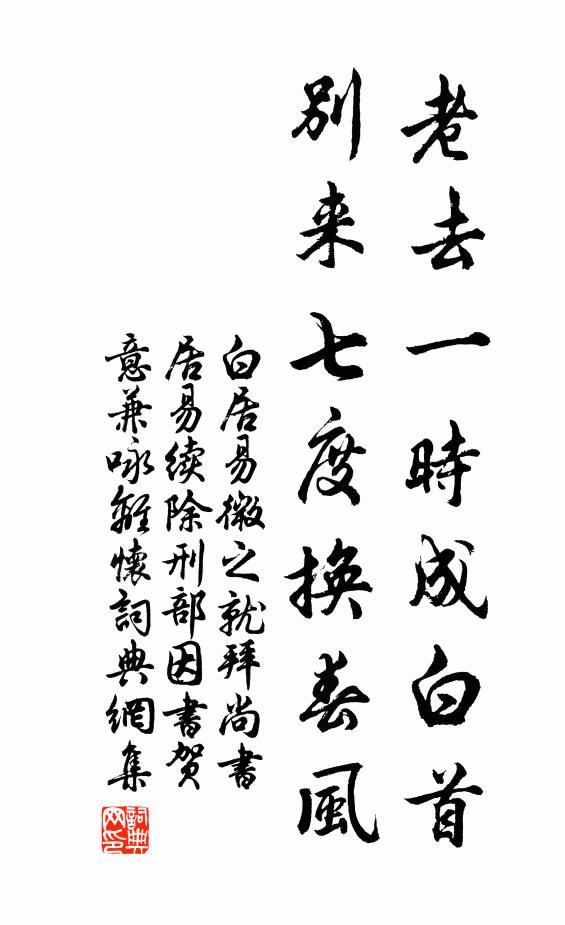 老去一時成白首
別来七度換春風
白居易微之就拜尚書
居易续除刑部因書贺
意兼咏離懷詞典網集
詞典网印